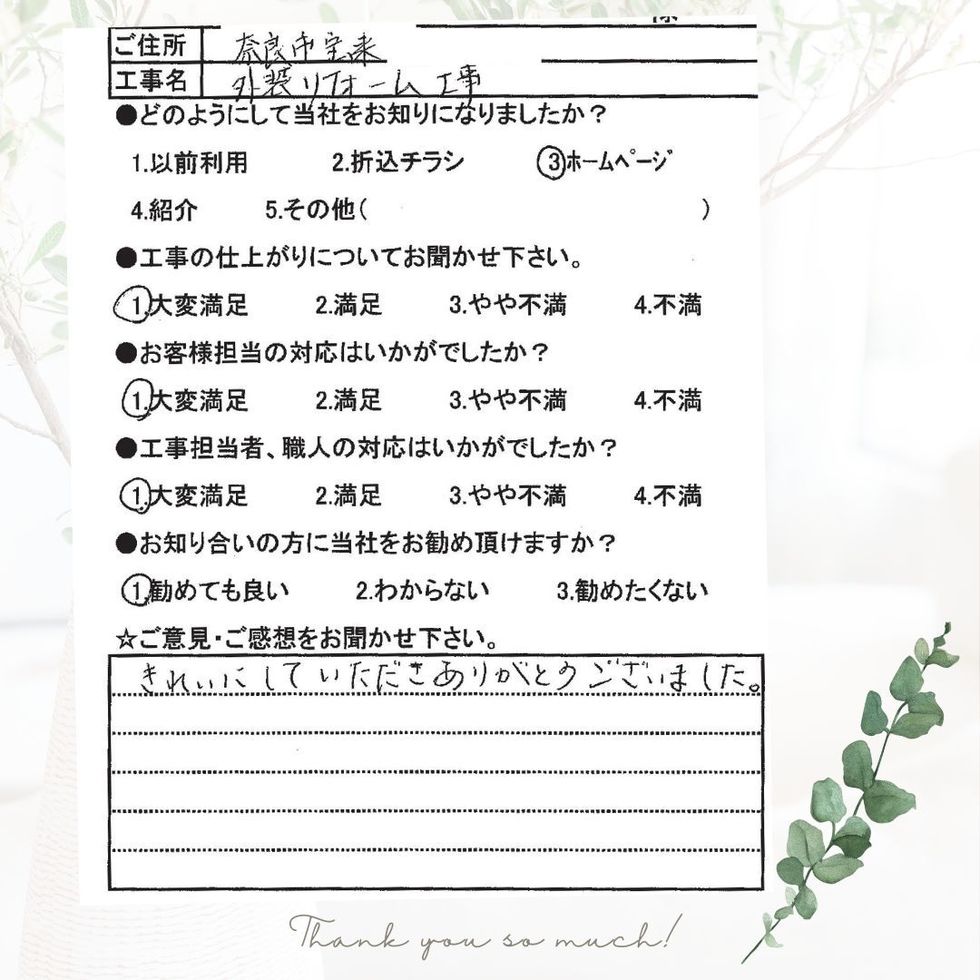 様
ご住所 奈良市宝来
工事名 外装リフォーム工事
●どのようにして当社をお知りになりましたか？
1.以前利用 2.折込チラシ 3ホームページ
4.紹介 5.その他( )
●工事の仕上がりについてお聞かせ下さい。
1.大変満足 2.満足 3.やや不満 4.不満
●お客様担当の対応はいかがでしたか？
1.大変満足 2.満足 3.やや不満 4.不満
●工事担当者、職人の対応はいかがでしたか？
1.大変満足 2.満足 3.やや不満 4.不満
●お知り合いの方に当社をお勧め頂けますか？
1勧めても良い 2.わからない 3.勧めたくない
☆ご意見・ご感想をお聞かせ下さい。
きれいにしていただきありがとうございました。
Thank you so much!